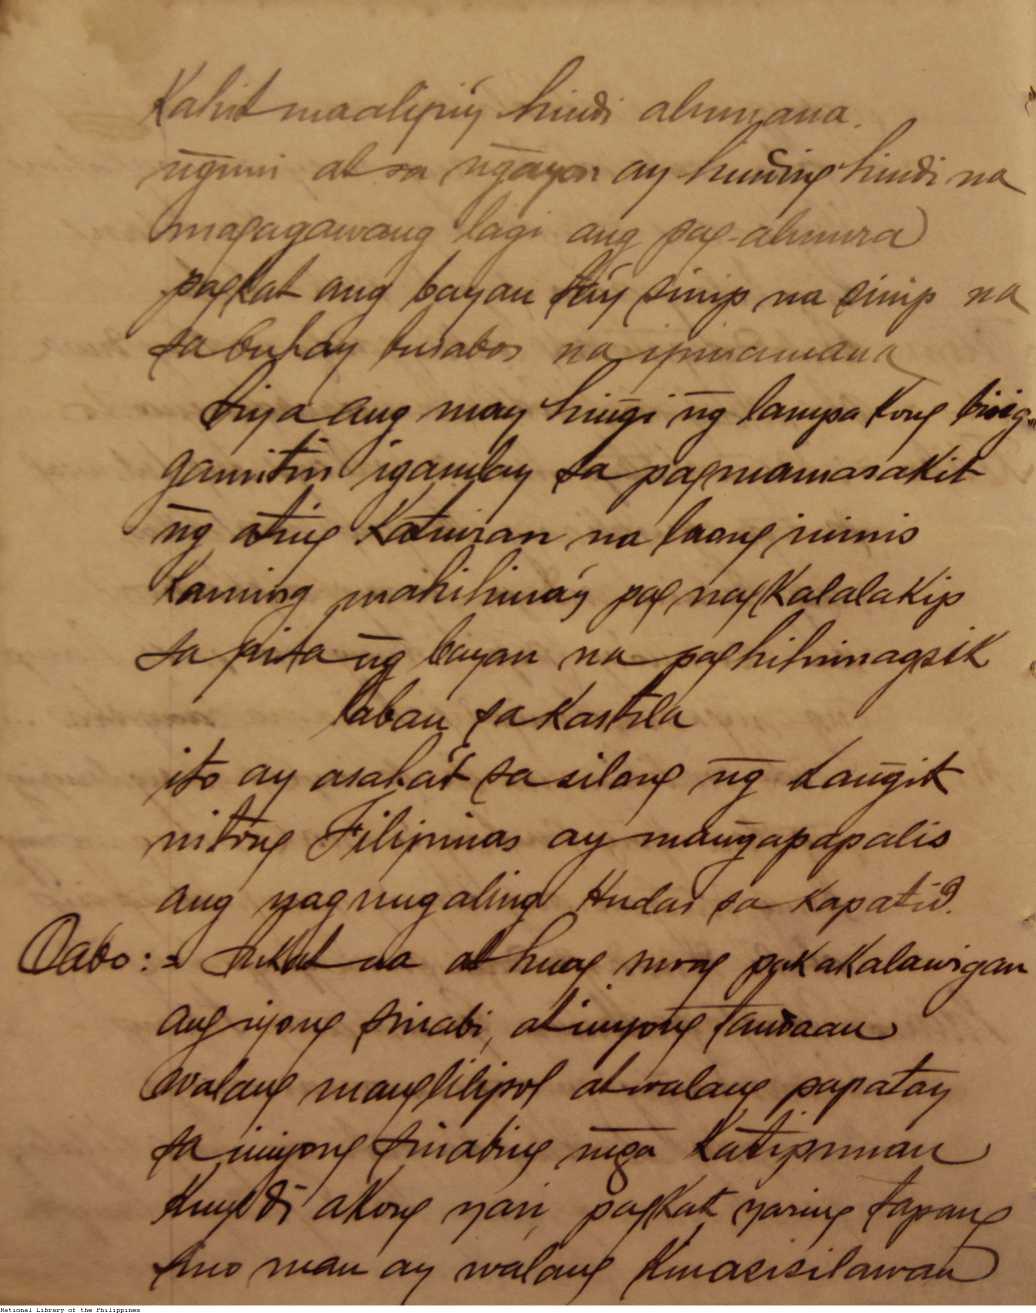 Kahit maalipiń hindi alumana.
n͠guni at sa n͠gayon ay hinding hindi na
magagawang lagi ang pag-alumira
pagkat ang bayan táy sinip na sinip na
sa buhay busabos na ipinamana
Siya ang may hin͠gi n͠g lampa kong bisig
gamitin igambay sa pagmamasakit
n͠g ating Katwiran na laong inimis
Kaming mahihináy pag nagkalalakip
sa pita n͠g bayan na paghihimagsik
laban sa Kastila
ito ay asahát sa silong n͠g Lan͠git
nitong Filipinas ay man͠gapapalis
ang nag nugaling Hudas sa Kapatid.
Cabo: = Sukat na at huag mong pakakalawigan
ang iyong sinabi, at inyong tandaan
walang manglilipol at walang papatay
sa iniyong sinabing mn͠ga Katipunan
Kungdi akong nari, pagkat naring tapang
sino man ay walang kinasisilawan
National Library of the Philippines